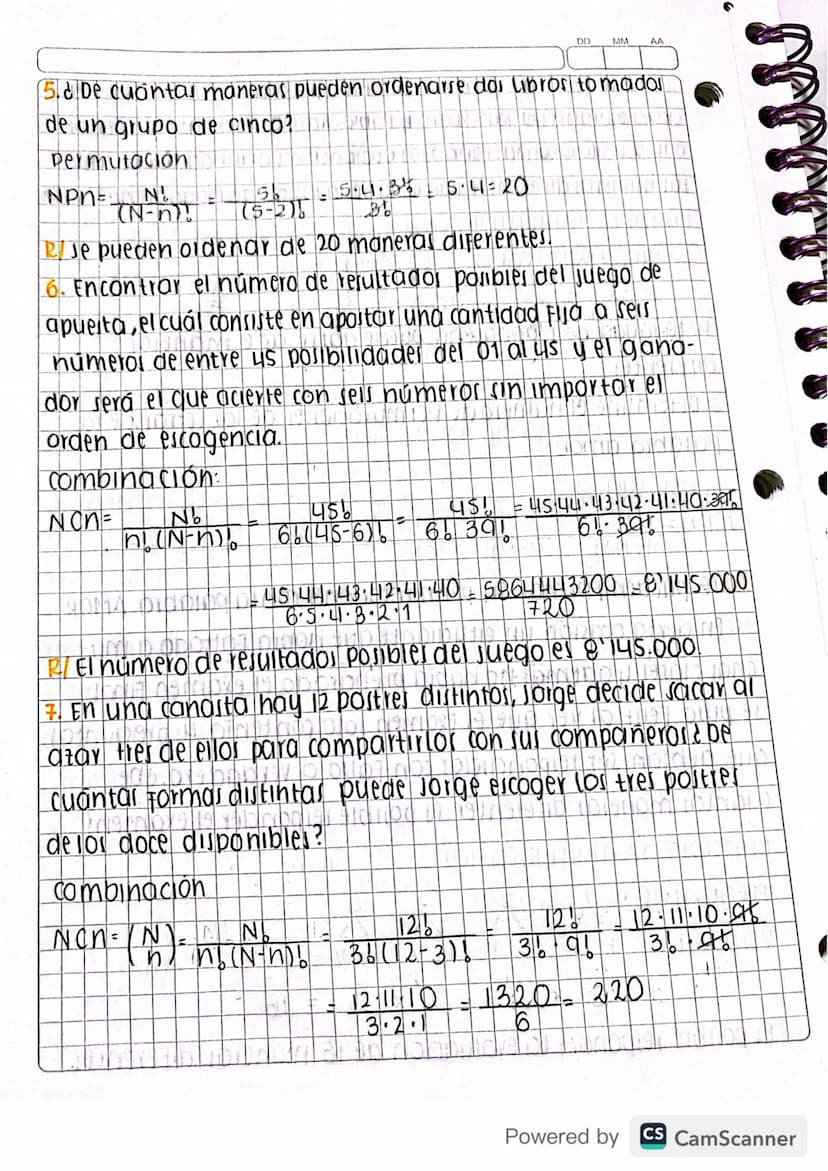 DD MM AA
5. ¿De cuántas maneras pueden ordenarse dos libros tomados
de un grupo de cinco?
Permutación
NPn = N! / (N-n)! = 5! / (5-2)! = 5·4·3! / 3! = 5·4 = 20
R/ Se pueden ordenar de 20 maneras diferentes.
6. Encontrar el número de resultados posibles del juego de
apuesta, el cuál consiste en apostar una cantidad fija a seis
números de entre 45 posibilidades del 01 al 45 y el gana-
dor será el que acierte con seis números sin importar el
orden de escogencia.
Combinación:
NCn = N! / n!(N-n)! = 45! / 6!(45-6)! = 45! / 6! 39! = 45·44·43·42·41·40·39! / 6!·39!
= 45·44·43·42·41·40 / 6·5·4·3·2·1 = 5864443200 / 720 = 8'145.000
R/ El número de resultados posibles del juego es 8'145.000.
7. En una canasta hay 12 postres distintos, Jorge decide sacar al
azar tres de ellos para compartirlos con sus compañeros ¿De
cuántas formas distintas puede Jorge escoger los tres postres
de los doce disponibles?
Combinación
NCn = (N n) = N! / n!(N-n)! = 12! / 3!(12-3)! = 12! / 3!·9! = 12·11·10·9! / 3!·9!
1
= 12·11·10 / 3·2·1 = 1320 / 6 = 220
Powered by CS CamScanner